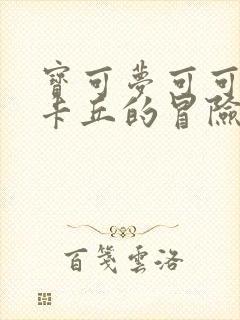 寶可夢可可
卡丘的冒險
百箋雲洛